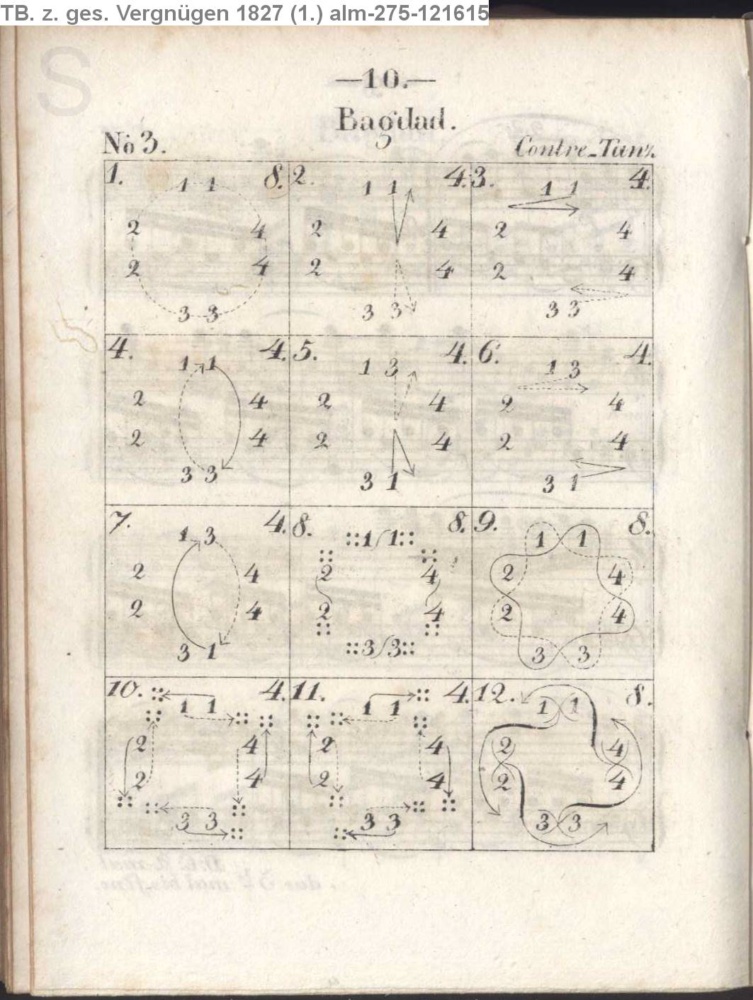 TB. z. ges. Vergnügen 1827 (1.) alm-275-121615
S
—10.—
Bagdad.
No 3. Contre-Tanz.
1. 8. 2. 4. 3. 4.
1 1 1 1 1 1
2 4 2 4 2 4
2 4 2 4 2 4
3 3 3 3 3 3
4. 4. 5. 4. 6. 4.
1 1 1 3 1 3
2 4 2 4 2 4
2 4 2 4 2 4
3 3 3 1 3 1
7. 4. 8. 8. 9. 8.
1 3 1 1 1 1
2 4 2 4 2 4
2 4 2 4 2 4
3 1 3 3 3 3
10. 4. 11. 4. 12. 8.
1 1 1 1 1 1
2 4 2 4 2 4
2 4 2 4 2 4
3 3 3 3 3 3